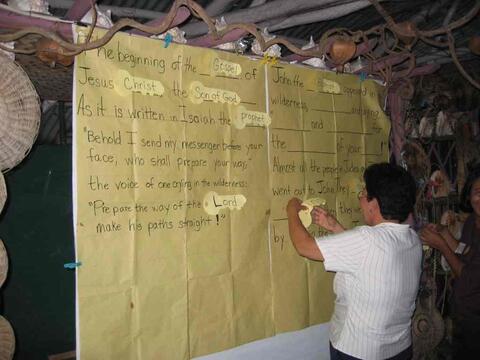 The beginning of the Gospel of
Jesus Christ the Son of God
As it is written in Isaiah the prophet
"Behold I send my messenger before your
face, who shall prepare your way;"
the voice of one crying in the wilderness:
"Prepare the way of the Lord
make his paths straight!"
John the appeared in
wilderness,
and for
the of your !"
Almost all the people in Judea
went out to John. They
by